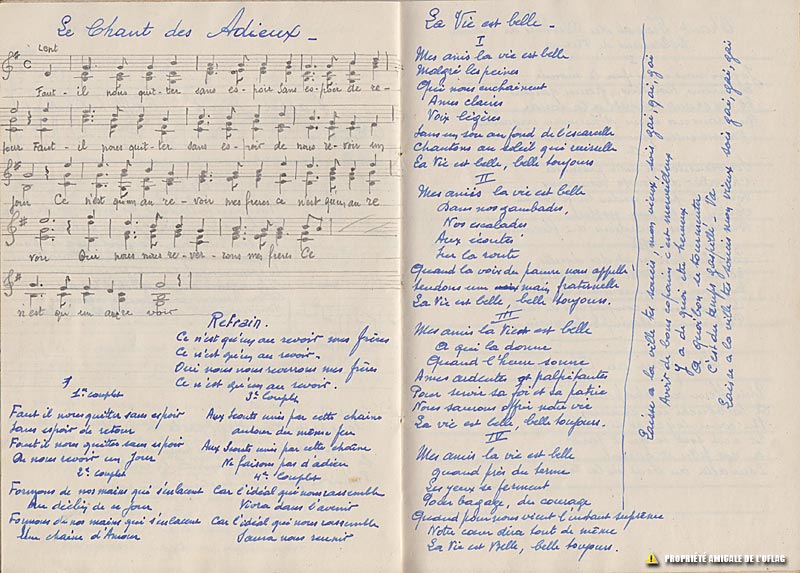 Le Chant des Adieux -
Lent
Faut - il nous quit - ter sans es - poir sans es - poir de re -
tour Faut - il nous quit - ter sans es - poir de nous re - voir un
jour Ce n'est qu'un au re - voir mes freres ce n'est qu'un au re
voir Oui nous nous re - ver - rons mes freres Ce
n'est qu'un au re voir
Refrain.
Ce n'est qu'un au revoir mes frères
Ce n'est qu'un au revoir.
Oui nous nous reverrons mes frères
Ce n'est qu'un au revoir.
1er couplet
Faut il nous quitter sans espoir
Sans espoir de retour
Faut il nous quitter sans espoir
De nous revoir un jour
2e couplet
Formons de nos mains qui s'enlacent
Au déclin de ce jour
Formons de nos mains qui s'enlacent
Une chaîne d'Amour
3e Couplet
Aux Scouts unis par cette chaine
autour du même feu
Aux Scouts unis par cette chaîne
Ne faisons pas d'adieu
4e Couplet
Car l'idéal qui nous rassemble
Vivra dans l'avenir
Car l'idéal qui nous rassemble
Saura nous reunir
La Vie est belle -
I
Mes amis la vie est belle
Malgré les peines
Qui nous enchainent
Ames claires
Voix légères
Sans un sou au fond de l'escarcelle
Chantons au soleil qui ruisselle
La Vie est belle, belle toujours
II
Mes amis la vie est belle
Dans nos gambades,
Nos escalades
Aux écoutes
Sur la route
Quand la voix du pauvre nous appelle
Tendons une main fraternelle
La Vie est belle, belle toujours.
III
Mes amis la Vie est belle
A qui la donne
Quand l'heure sonne
Ames ardentes et palpitantes
Pour servir sa foi et sa patrie
Nous saurons offrir notre vie
La vie est belle, belle toujours.
IV
Mes amis la vie est belle
quand près du terme
Les yeux se ferment
Pour bagage, du courage
Quand pour nous vient l'instant suprême
Notre cœur dira tout de même
La Vie est Belle, belle toujours.
Laisse a la ville tes soucis, mon vieux, sois gai, gai, gai
Avoir de bons copains c'est merveilleux
Y a de quoi etre heureux
A quoi bon se tourmenter
C'est du temps gaspillé - Va
Laisse a la ville tes soucis mon vieux sois gai, gai, gai
PROPRIÉTÉ AMICALE DE L'OFLAG